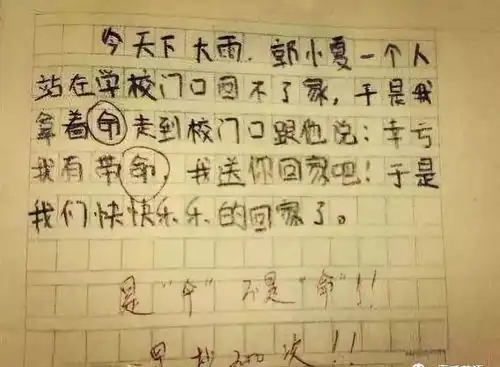 今天下大雨，郭小夏一个人
站在学校门口回不了家，于是我
拿着命走到校门口跟他说：幸亏
我有带命，我送你回家吧！于是
我们快快乐乐的回家了。
是"伞"不是"命"!!
抄200次!!